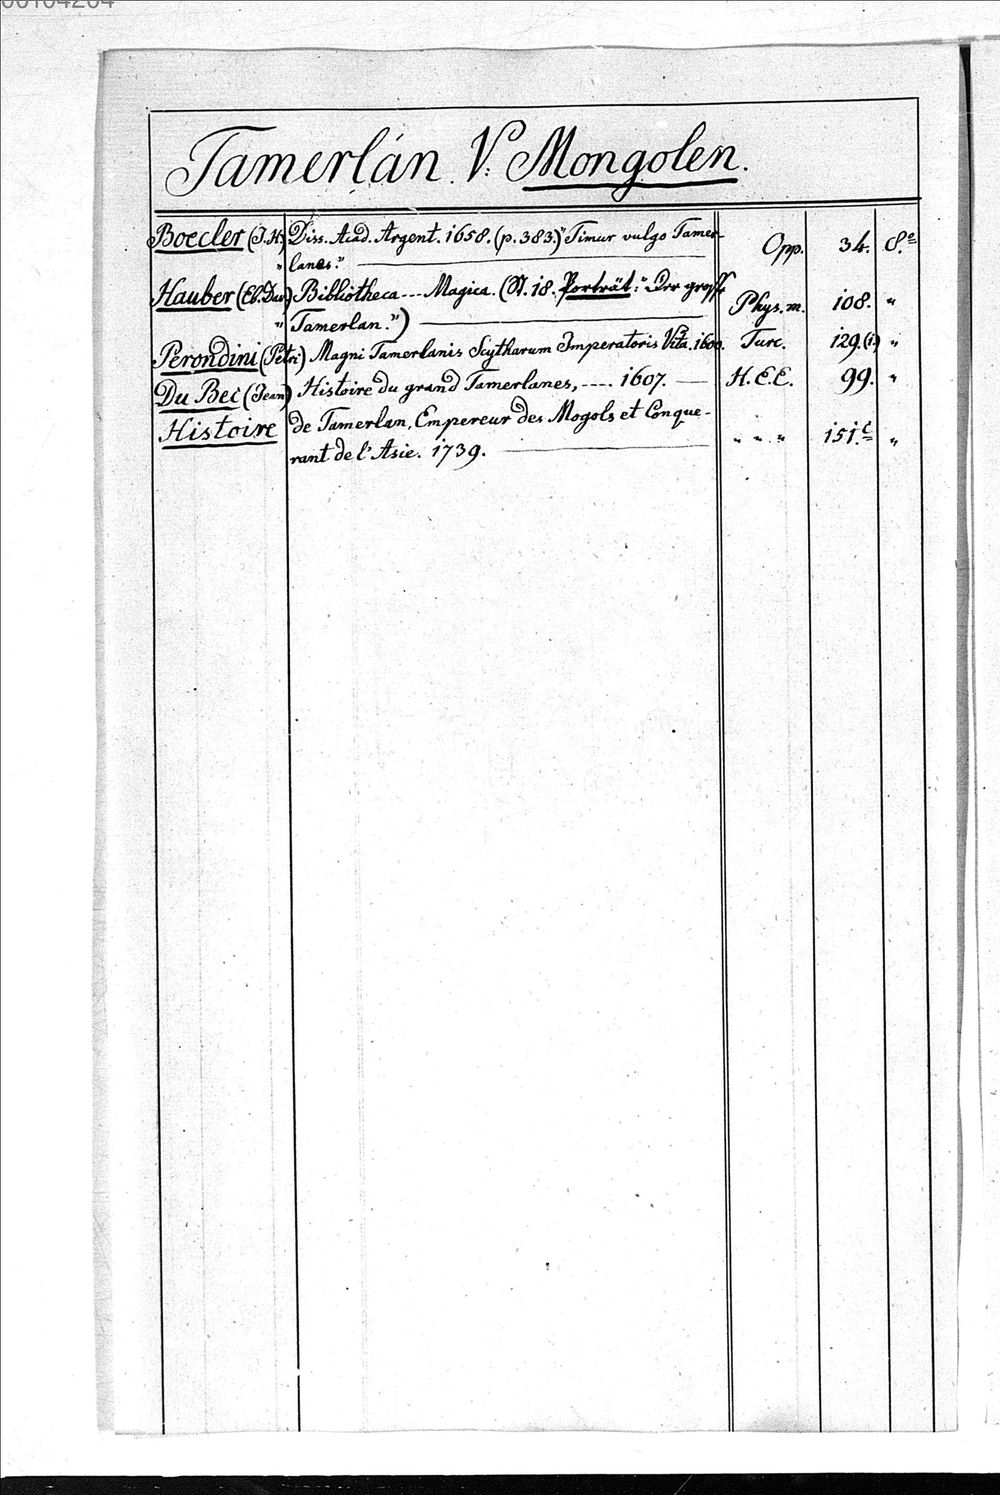 Tamerlán V: Mongolen.
Boecler (J. H.) Diss. Acad. Argent. 1658. (p. 383.) "Timur vulgo Tamer- Opp. 34. 8º
" lanes."
Hauber (Eb. Dav.) Bibliotheca --- Magica. (St. 18. Porträt: "Der grosse Phys. m. 108. "
" Tamerlan.")
Perondini (Petri) Magni Tamerlanis Scytharum Imperatoris Vita. 1600. Turc. 129.(i.) "
Du Bec (Jean) Histoire du grand Tamerlanes, ---- 1607. H. E. E. 99. "
Histoire de Tamerlan, Empereur des Mogols et Conque- " " " 151.c "
rant de l'Asie. 1739.